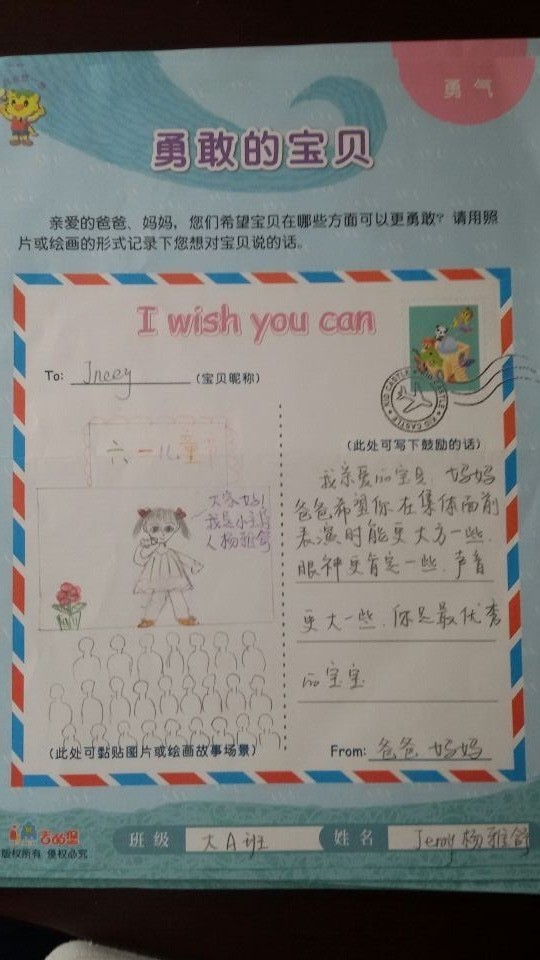 勇气
勇敢的宝贝
亲爱的爸爸、妈妈，您们希望宝贝在哪些方面可以更勇敢？请用照
片或绘画的形式记录下您想对宝贝说的话。
I wish you can
To:
(宝贝昵称)
KID CASTLE KID CASTLE
六一儿童节
大家好！
我是小主持
人杨雅舒
(此处可黏贴图片或绘画故事场景)
(此处可写下鼓励的话)
我亲爱的宝贝，妈妈
爸爸希望你在集体面前
表演时能更大方一些，
眼神更肯定一些，声音
更大一些，你是最优秀
的宝宝
From: 爸爸 妈妈
吉的堡
版权所有 侵权必究
班级 大A班 姓名 杨雅舒